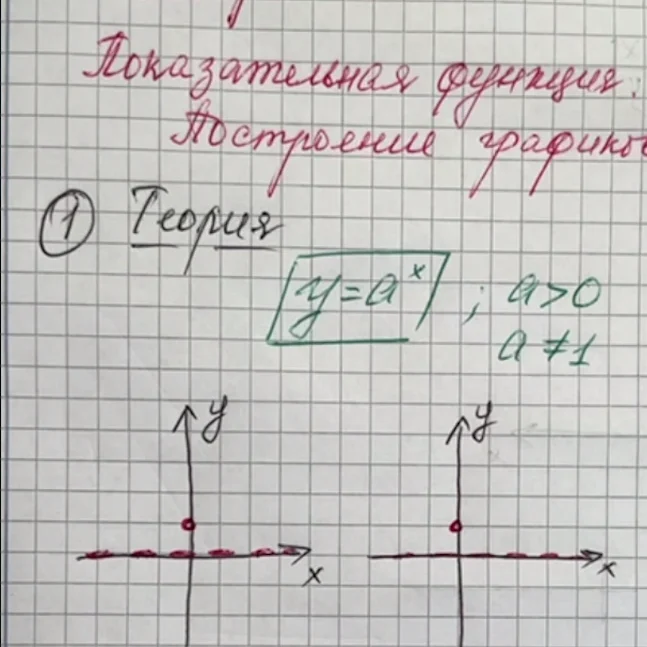 Показательная функция.
Построение графиков
① Теория
y=aˣ ; a>0
a≠1
y y
x x